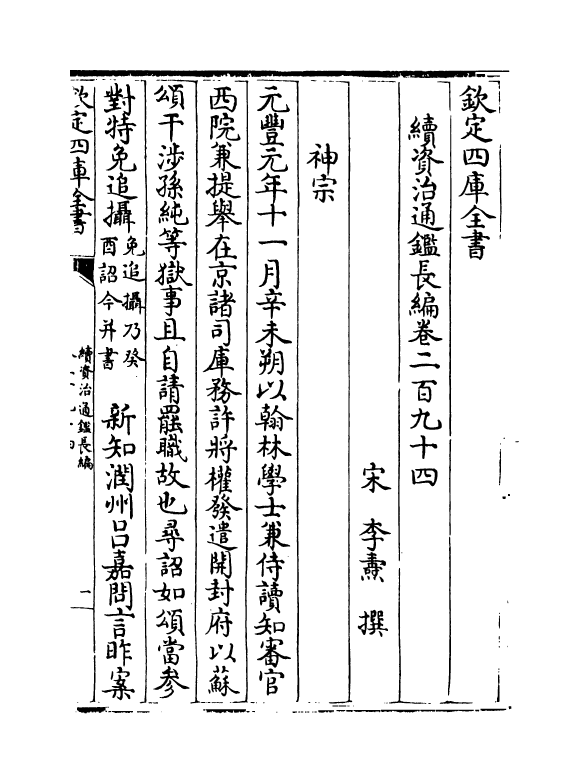 欽定四庫全書
續資治通鑑長編卷二百九十四
宋 李燾 撰
神宗
元豐元年十一月辛未朔以翰林學士兼侍讀知審官
西院兼提舉在京諸司庫務許將權發遣開封府以蘇
頌干涉孫純等獄事且自請罷職故也尋詔如頌當參
對特免追攝免追攝乃癸酉詔今并書 新知潤州吕嘉問言昨案
欽定四庫全書
續資治通鑑長編
一